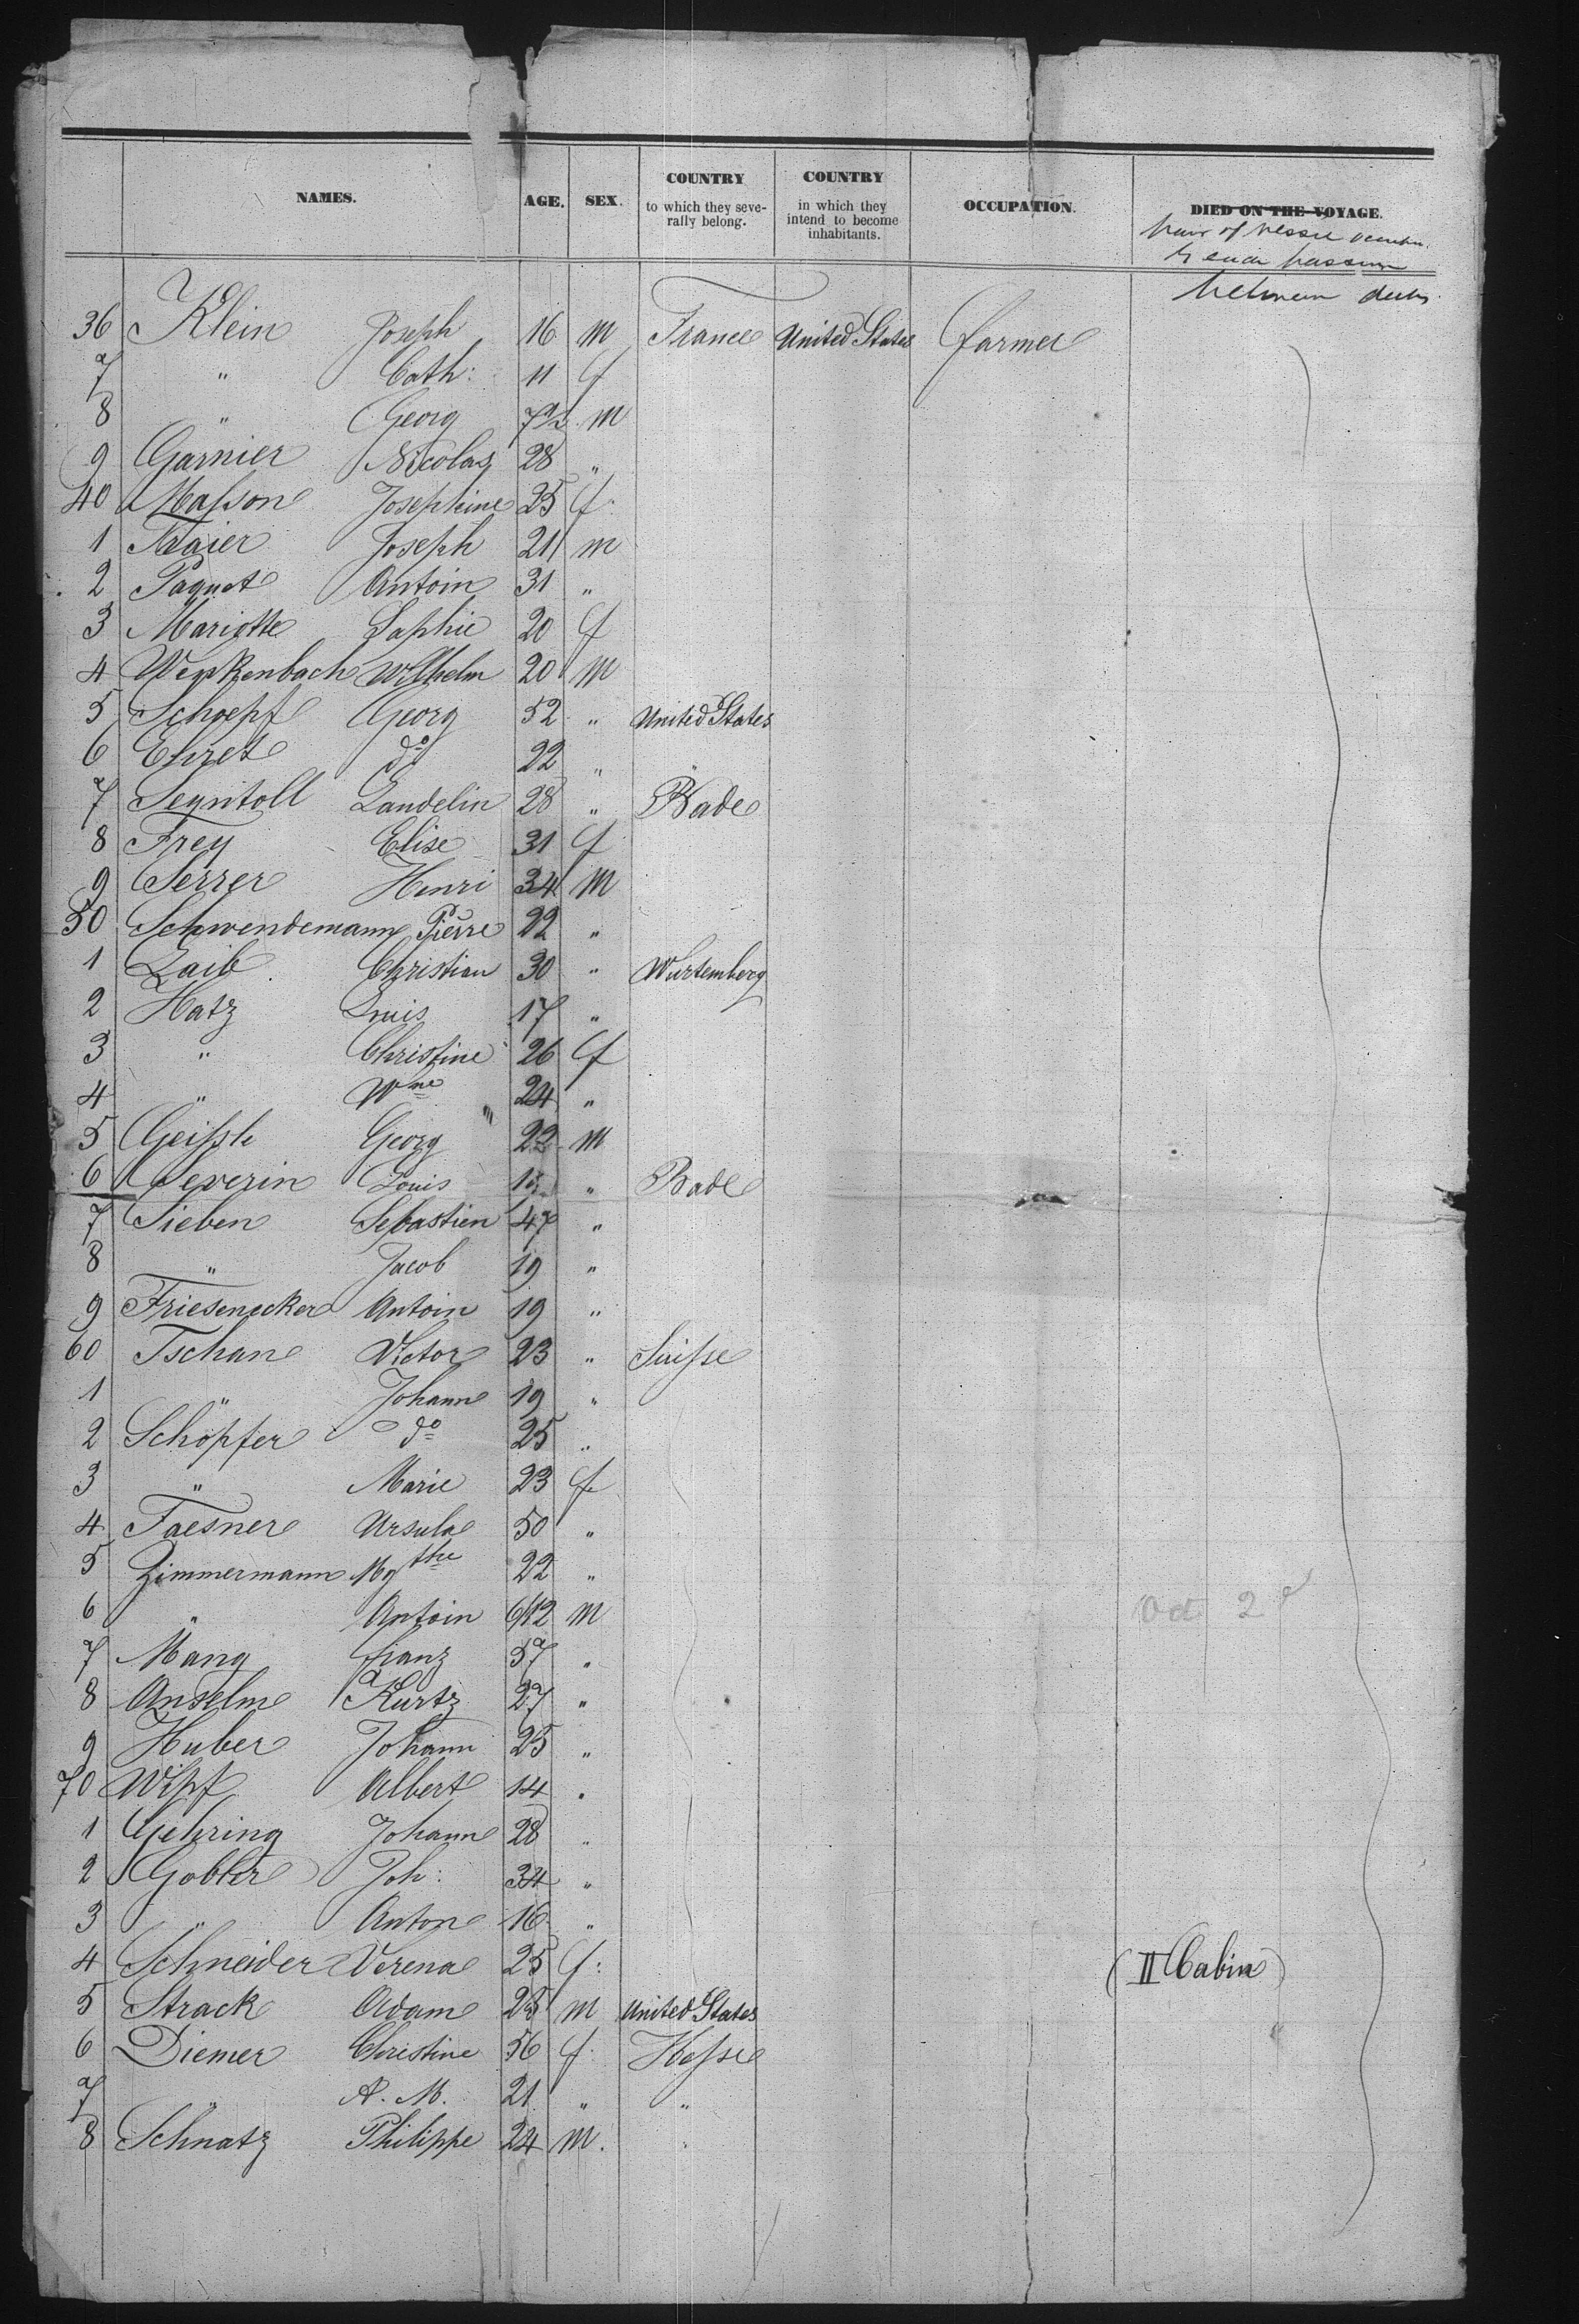 NAMES. AGE. SEX. COUNTRY to which they severally belong. COUNTRY in which they intend to become inhabitants. OCCUPATION. DIED ON THE VOYAGE.
of Vessel
between decks
36 Klein Joseph 16 m France United States farmer
7 " Cath: 11 f
8 " Georg m
9 Garnier Nicolas 28 "
40 Masson Josephine 25 f
1 Joseph 21 m
2 Paquet Antoin 31 "
3 Mariotte Sophie 20 f
4 Wilhelm 20 m
5 Schoepf Georg 52 " United States
6 Ehret do 22 " "
7 Landelin 28 " Bade
8 Frey Elise 31 f
9 Serrer Henri 34 m
50 Schwendemann Pierre 22 "
1 Laib Christian 30 " Wurtemberg
2 Hatz Louis 17 "
3 " Christine 26 f
4 " Wne 24 "
5 Georg 22 m
6 Severin Louis " Bade
7 Sieben Sebastien 47 "
8 " Jacob 19 "
9 Friesenecker Antoin 19 "
60 Tschan Victor 23 " Suisse
1 " Johann 19 "
2 Schöpfer do 25 "
3 " Marie 23 f
4 Faesner Ursula 50 "
5 Zimmermann Mgthe 22 "
6 " Antoin 6/12 m
7 Mang franz 57 "
8 Anselm Kurtz 27 "
9 Huber Johann 25 "
70 Wipf Albert 14 "
1 Gehring Johann 28 "
2 Gobler Joh: 34 "
3 " Anton 16 "
4 Schneider Verena 25 f: (II Cabin)
5 Strack Adam 25 m United States
6 Diemer Christine 56 f. Hesse
7 " A. M. 21 " "
8 Schnatz Philippe 24 m. "